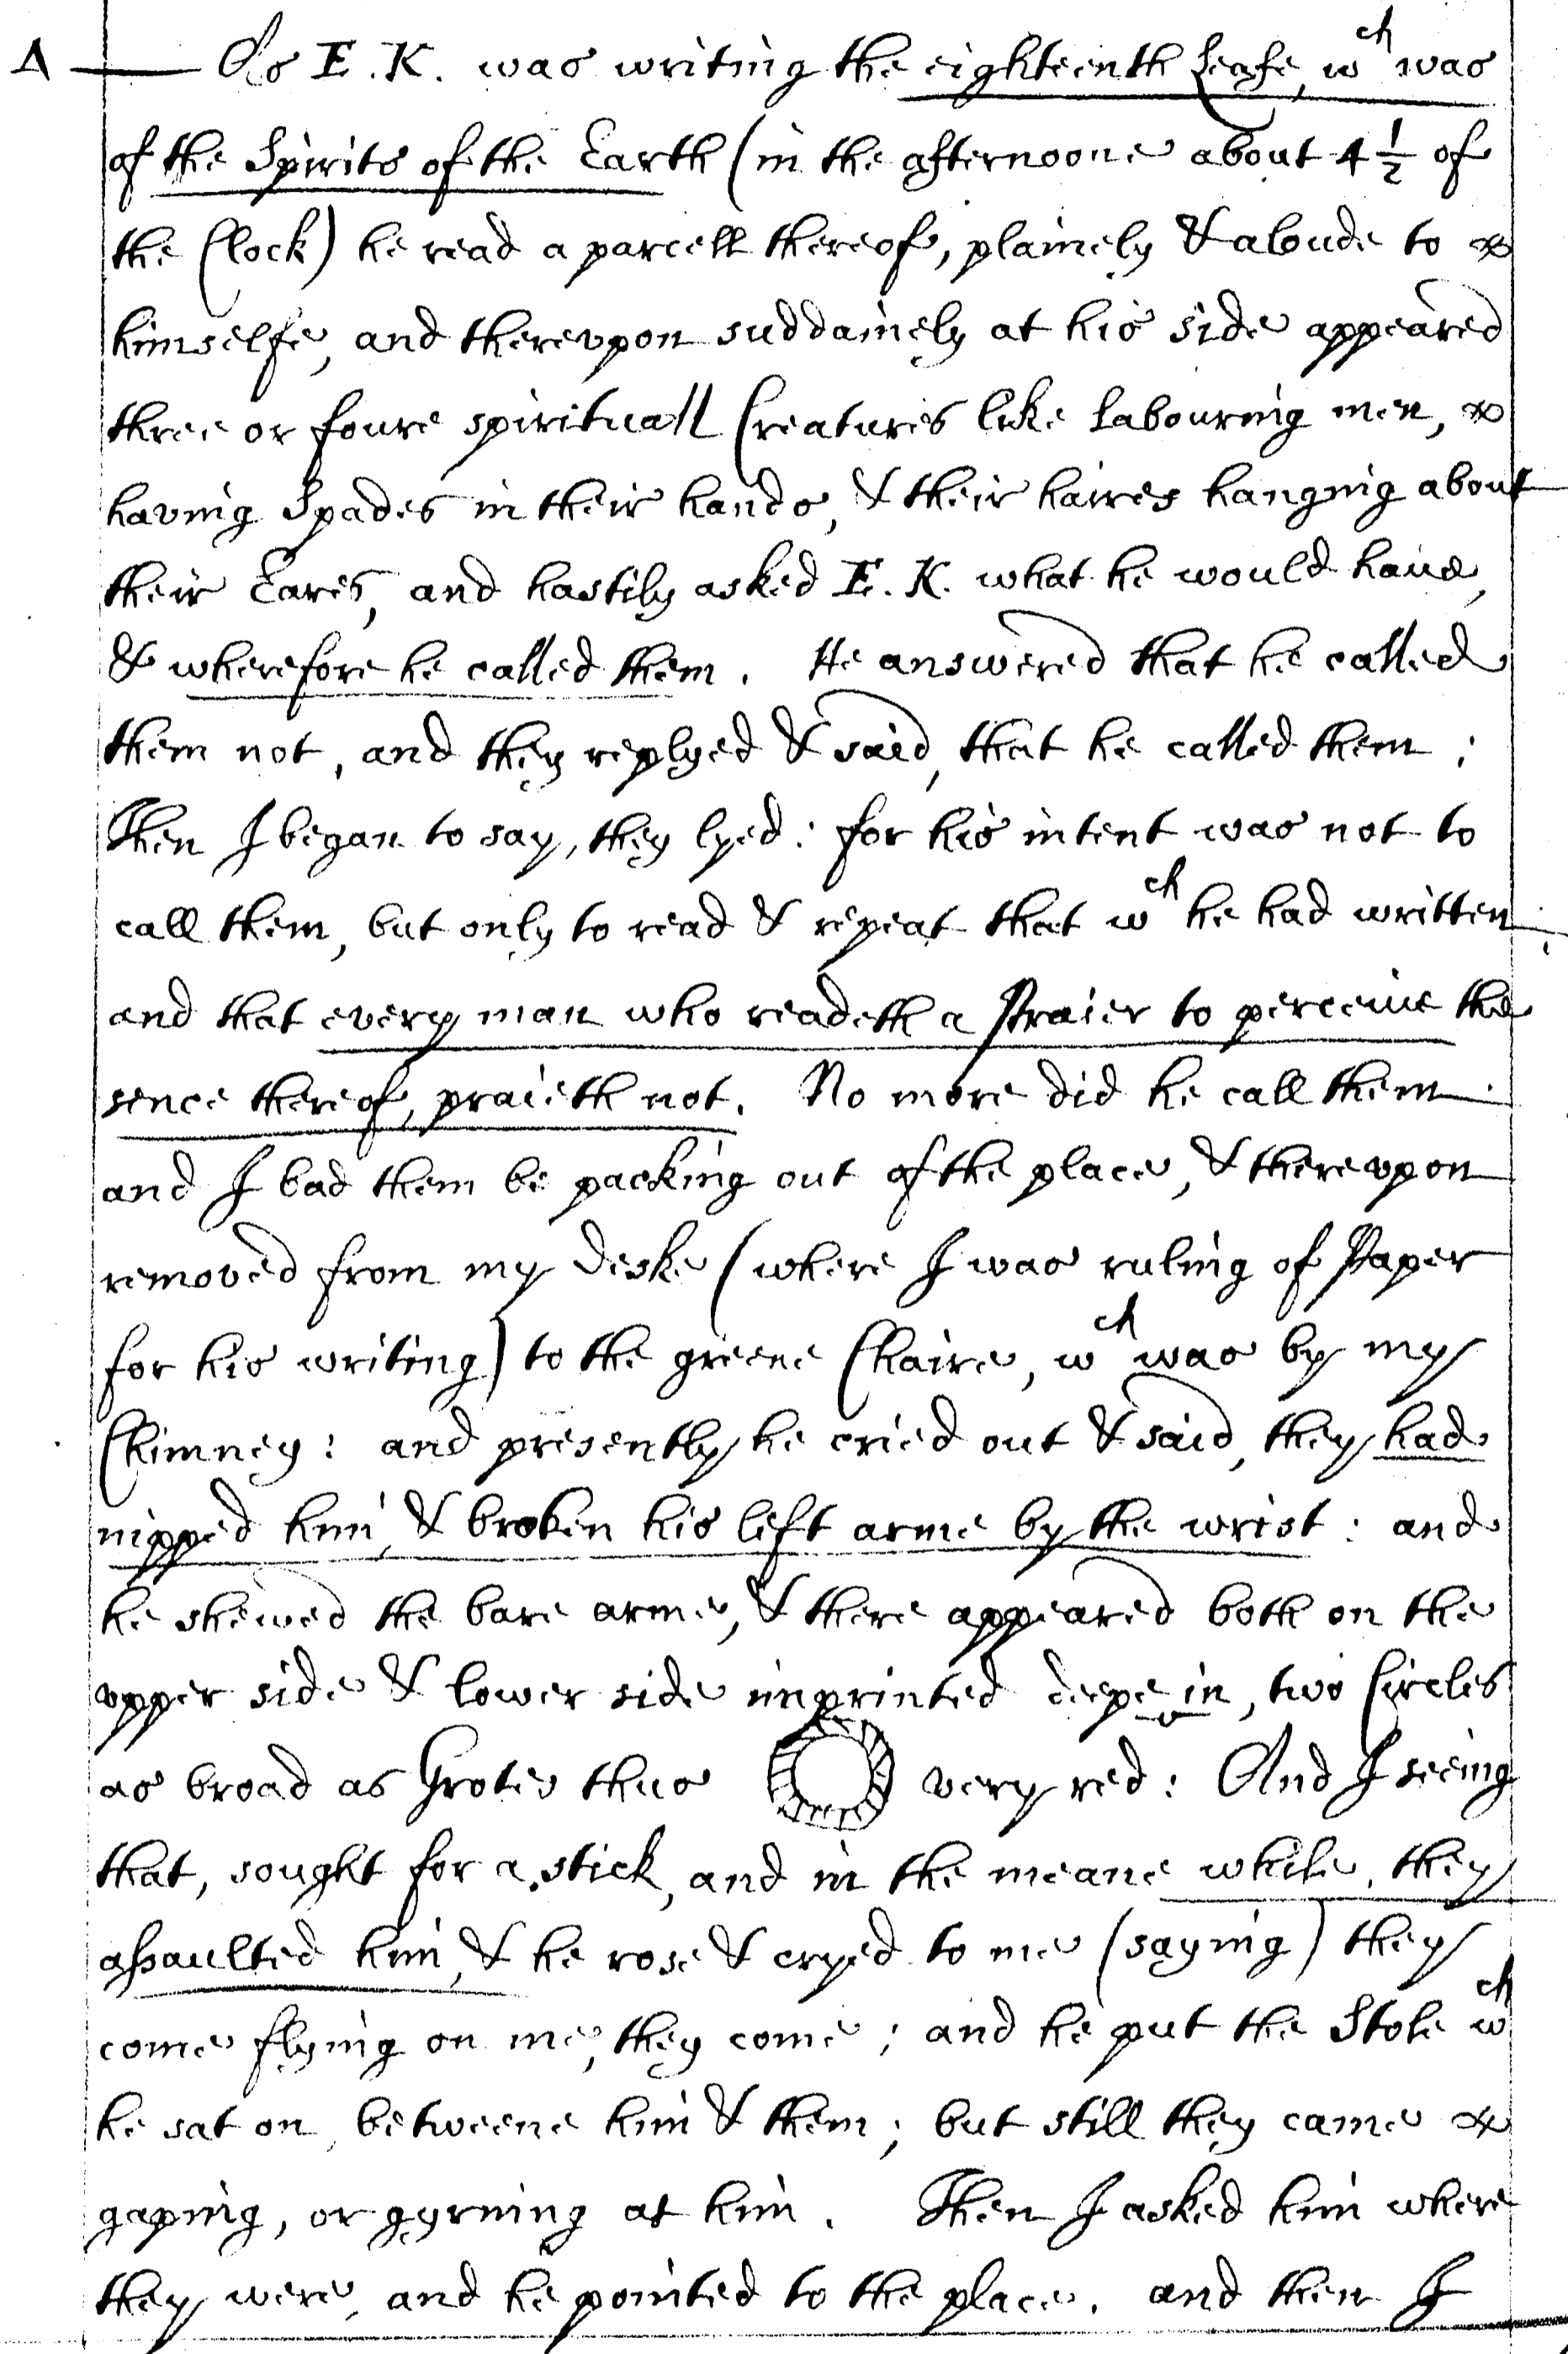 Δ — As E. K. was writing the eighteenth Leafe, wch was
of the Spirits of the Earth (in the afternoone about 4 1/2 of
the Clock) he read a parcell thereof, plainely & aloude to
himselfe, and therevpon suddainely at his side appeared
three or foure spirituall Creatures like Labouring men,
having Spades in their hands, & their haires hanging about
their Eares, and hastily asked E. K. what he would haue,
& wherefore he called them. He answered that he called
them not, and they replyed & said, that he called them:
Then I began to say, they lyed: for his intent was not to
call them, but only to read & repeat that wch he had written
and that every man who readeth a Praier to perceiue the
sence thereof, praieth not. No more did he call them.
and I bad them be packing out of the place, & therevpon
removed from my Deske (where I was ruling of Paper
for his writing) to the greene Chaire, wch was by my
Chimney: and presently he cried out & said, they had
nipped him, & broken his left arme by the wrist: and
he shewed the bare arme, & there appeared both on the
vpper side & lower side imprinted deepe in, two Circles
as broad as Grotes thus very red: And I seeing
that, sought for a stick, and in the meane while, they
assaulted him, & he rose & cryed to me (saying) they
come flying on me, they come; and he put the Stole wch
he sat on, betweene him & them; but still they came
gaping, or gyrning at him. Then I asked him where
they were, and he pointed to the place. and then I